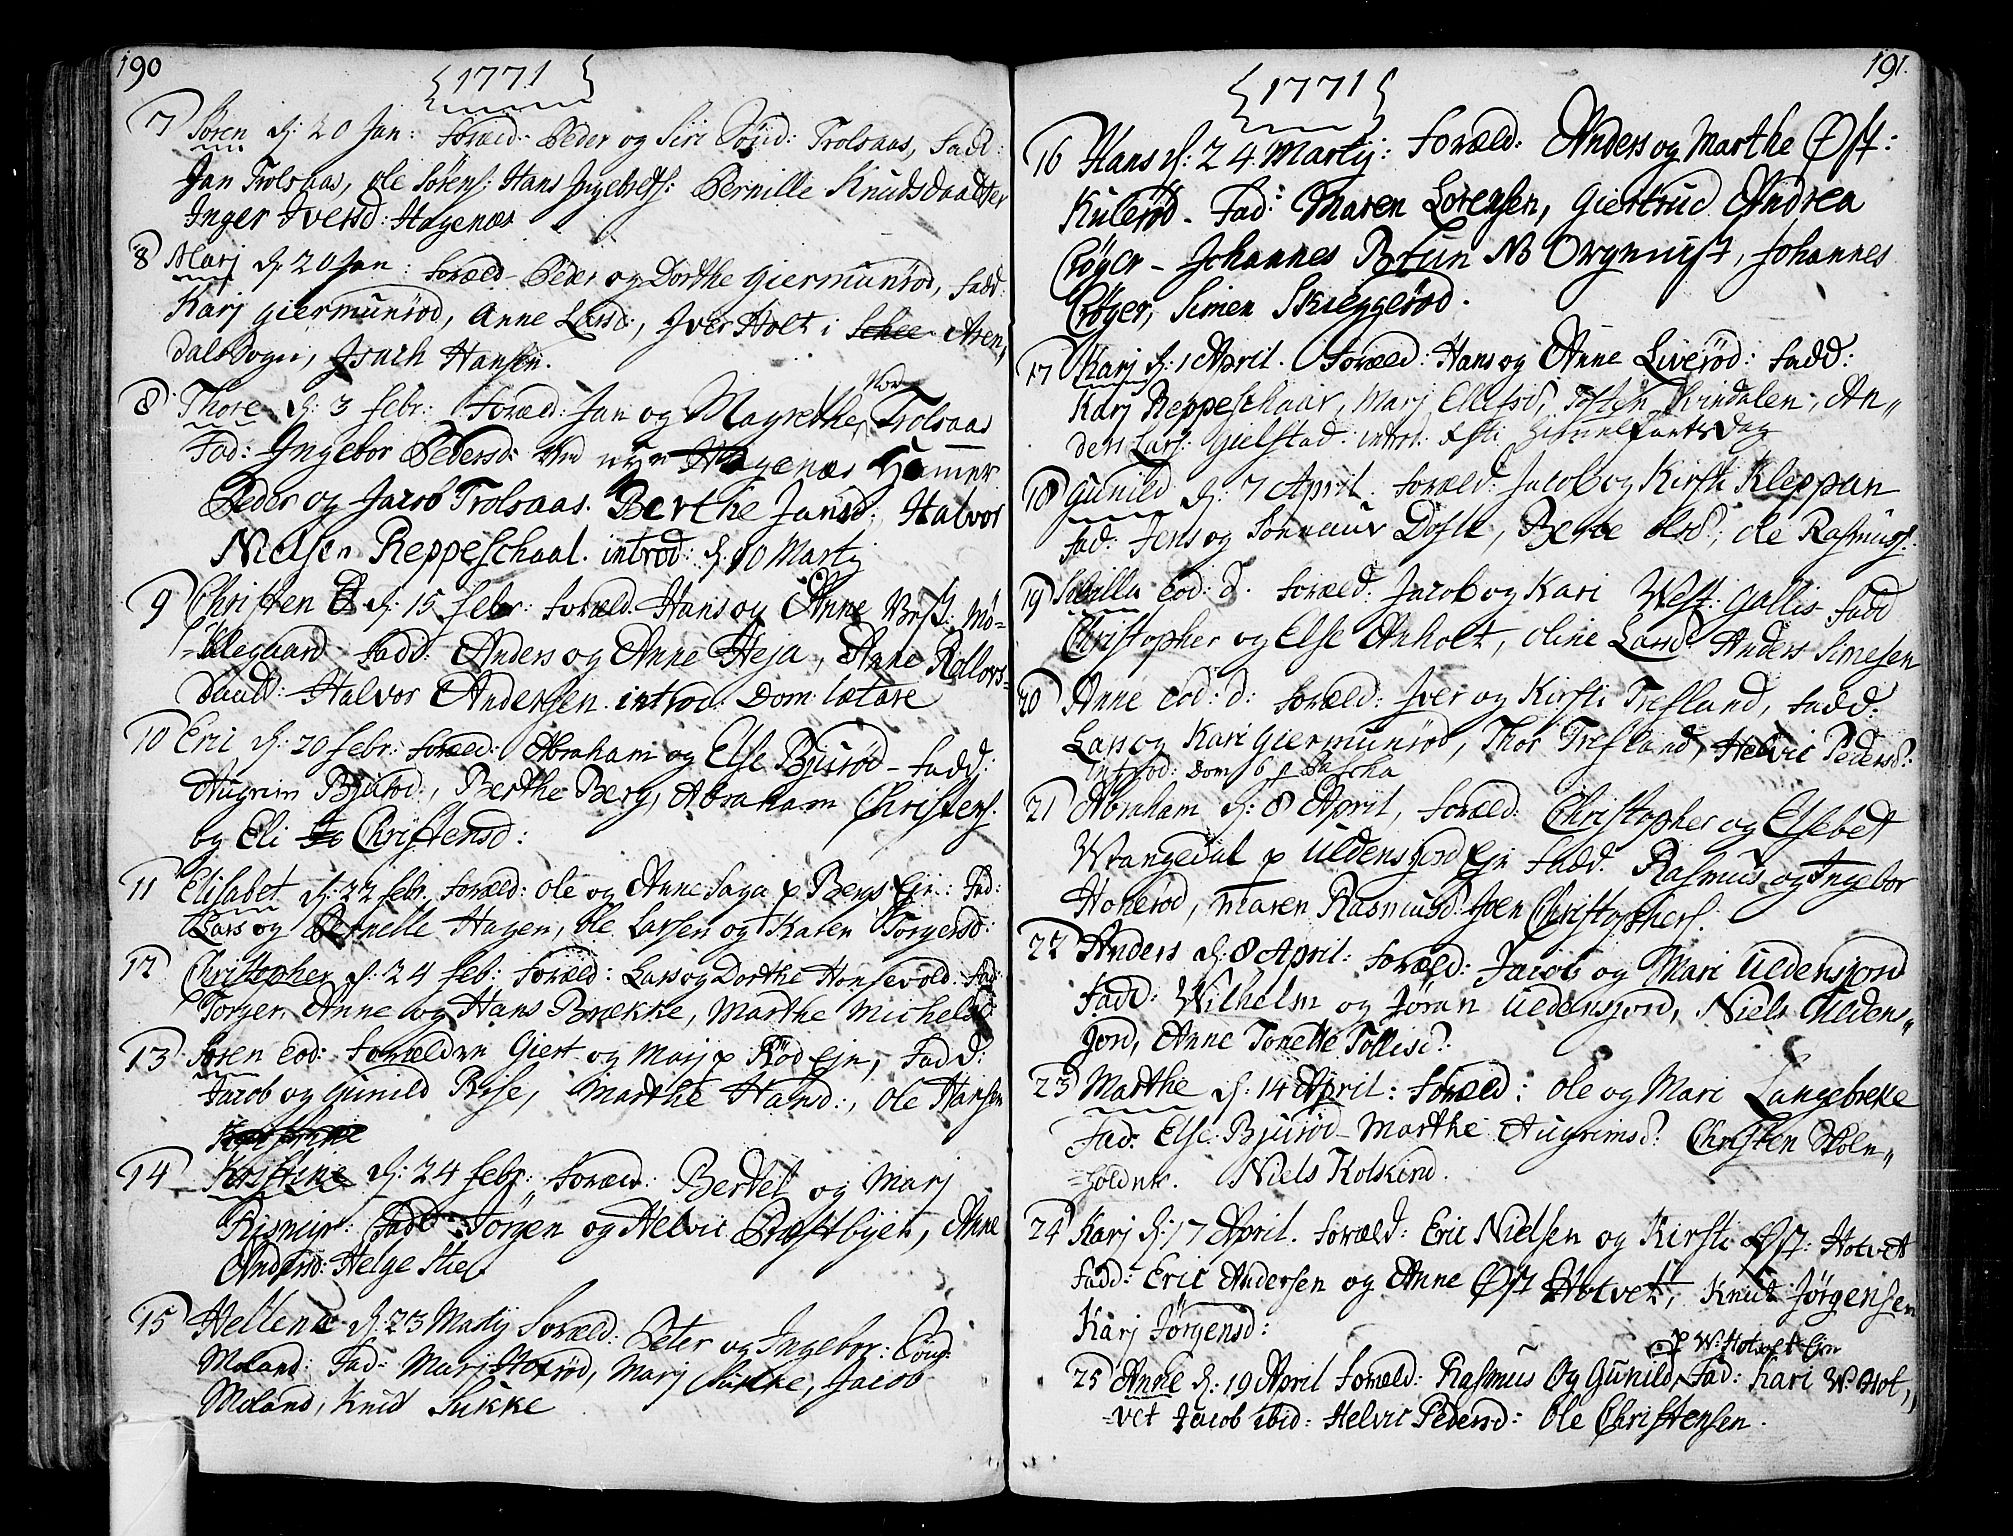 190
1771
7 Søren d: 20 Jan: Foræld: Peder og Siri Trolsaas, Fadd:
Jan Trolsaas, Ole Sørens: Hans Ingebrets: Pernille Knudsdaatter
Inger Iversd: Hagenæs
8 Marj d. 20 Jan: Foræld- Peder og Dorthe Giermunrød, Fadd:
Karj Giermunrød, Anne Larsd:, Iver Holt i Aren,
dals Sogn, Isach Hansen.
8 Thore d: 3 Febr: Foræld: Jan og Magrethe Nor Trolsaas
Fad: Ingebor Pedersd: Hagenæs Hammer
Peder og Jacob Trolsaas. Berthe Jansd: Halvor
Nielsen Reppeschaal. introd: d: 10 Martj
9 Christen d: 15 Febr: Foræld: Hans og Anne Vest: Mø-
-llegaard Fadd: Anders og Anne Heja, Anne Rollovs-
daatt: Halvor Andersen. introd: Dom: lætare
10 Eric d: 20 Febr: Foræld: Abraham og Else Bjurød - Fadd:
Augrim Bjurød, Berthe Berg, Abraham Christens:
og Eli Christensd:
11 Elisabet d: 22 Febr. Foræld: Ole og Anne Saga p Bergs Ejn: Fad:
Lars og Pernelle Hagen, Ole Larsen og Karen Torgersd:
12 Christopher d: 24 Feb: Foræld: Lars og Dorthe Honsevold. Fad:
Torger, Anne og Hans Brække, Marthe Michelsd
13 Søren Eod: Forældrn Giert og Marj p Rød Ejn, Fadd:
Jacob og Gunild Rise, Marthe Hansd:, Ole Hansen
14 Kristine d: 24 Febr: Foræld: Bertel og Marj
Rismyr: Fadd: Jørgen og Helvic Præstbyen, Anne
Andersd: Helge Stie
15 Hellene d: 23 Martj Foræld: Peter og Ingebor:
Moland: Fad: Marj Hoxrød, Marj Sukke, Jacob
Moland, Knud Sukke
191.
1771
16 Hans d: 24 Martj: Foræld: Anders og Marthe Øst:
Kulerød - Fad: Maren Lorensen, Giertrud Andrea
Crøger - Johannes NB Johannes
Crøger, Simen Skieggerød.
17 Karj d: 1 April. Foræld: Hans og Anne Liverød: Fadd:
Karj Reppeschaar, Marj Ellefsd, An„
ders Lars: Gielstad: introd: Festi Himmelfartsdag
18 Gunild d: 7 April: Foræld: Jacob og Kirsti Kleppan
Fad: Jens og Dofle, Berte Olsd:, Ole Rasmuss:
19 Sibilla Eod: d. Foræld: Jacob og Kari West: Gallis Fadd
Christopher og Else Anholt, Oline Larsd: Anders Simesen
20 Anne Eod: d: Foræld: Iver og Kirsti Trefland, Fadd:
Lars og Kari Giermunrød, Thor Trefland, Helvic Pedersd:
introd: Dom 6 p Pascha
21 Abraham d: 8 April, Foræld: Christopher og Elsebet
Wrangedal p Uldensjord Ejn Fadd. Rasmus og Ingebor
Honerød, Maren Rasmusd: Joen Christophers:
22 Anders d: 8 April: Foræld: Jacob og Mari Uldensjord
Fadd: Wilhelm og Jøran Uldensjord, Niels Uldens„
jord, Anne Tonette Tollisd:
23 Marthe d: 14 April: Foræld: Ole og Mari Langebrekke
Fad: Else Bjurød - Marthe Augrimsd: Christen Skoln„
=holdnr. Niels Kolskind.
24 Karj d: 17 April. Foræld: Eric Nielsen og Kirsti Øst: Hotvet
Fadd: Eric Andersen og Anne Øst Hotvet, Knut Jørgensen
Karj Jørgensd:
p W: Hotvet Ejn
25 Anne d: 19 April Foræld: Rasmus og Gunild, Fad: Kari W: Hot„
=vet Jacob ibid: Helvic Pedersd: Ole Christensen.